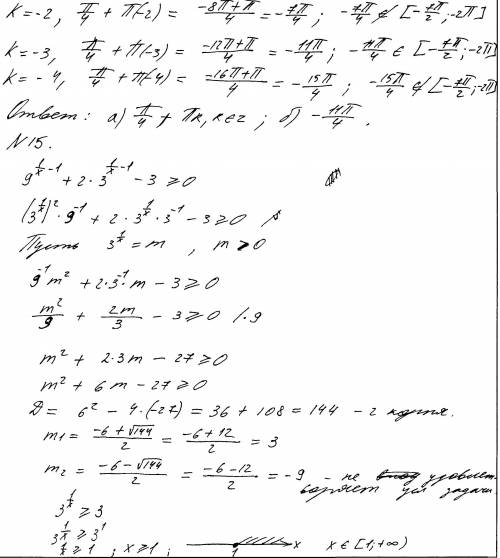 K=-2, π/4 + π(-2) = (-8π+π)/4 = -7π/4 ; -7π/4 ∉ [-7π/2; -2π]
K=-3, π/4 + π(-3) = (-12π+π)/4 = -11π/4 ; -11π/4 ∈ [-7π/2; -2π]
K=-4, π/4 + π(-4) = (-16π+π)/4 = -15π/4 ; -15π/4 ∉ [-7π/2; -2π]
Ответ: а) π/4 + πк, к∈z ; б) -11π/4 .
N 15.
9^(1/x - 1) + 2·3^(1/x - 1) - 3 ≥ 0
(3^(1/x))²·9^(-1) + 2·3^(1/x)·3^(-1) - 3 ≥ 0
Пусть 3^(1/x) = m , m > 0
9^(-1) m² + 2·3^(-1)·m - 3 ≥ 0
m²/9 + 2m/3 - 3 ≥ 0 /·9
m² + 2·3m - 27 ≥ 0
m² + 6m - 27 ≥ 0
D = 6² - 4·(-27) = 36 + 108 = 144 - 2 корня.
m1 = (-6+√144)/2 = (-6+12)/2 = 3
m2 = (-6-√144)/2 = (-6-12)/2 = -9 - не удовлет-
воряет усл задачи.
3^(1/x) ≥ 3
3^(1/x) ≥ 3^1
1/x ≥ 1 ; x ≥ 1 ; 1 x x ∈ [1; +∞)